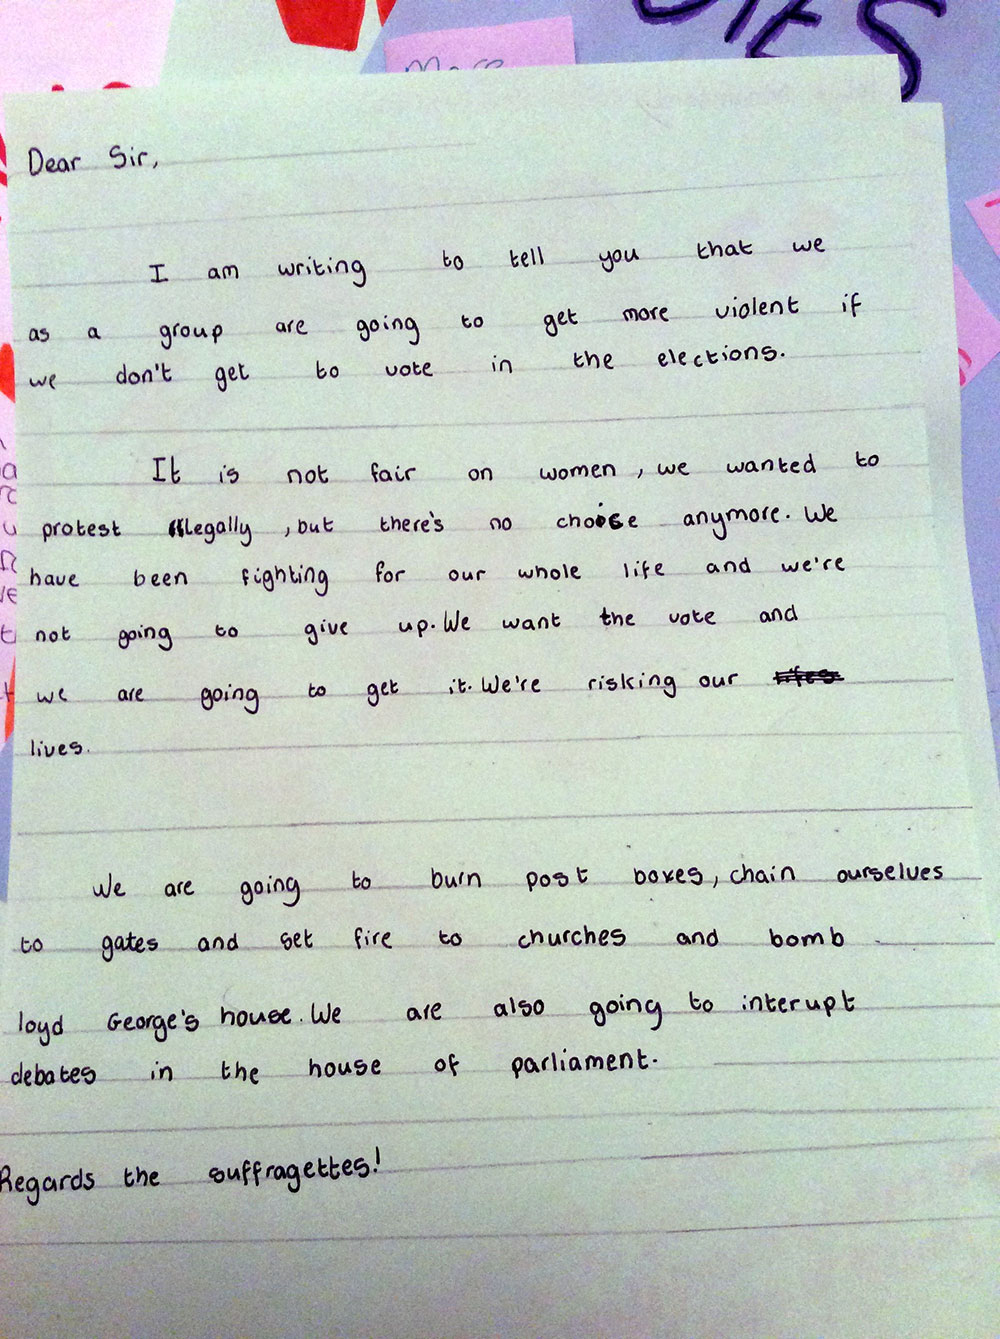 More
Dear Sir,
I am writing to tell you that we
as a group are going to get more violent if
we don't get to vote in the elections.
It is not fair on women, we wanted to
protest legally, but there's no choise anymore. We
have been fighting for our whole life and we're
not going to give up. We want the vote and
we are going to get it. We're risking our
lives.
We are going to burn post boxes, chain ourselves
to gates and set fire to churches and bomb
loyd George's house. We are also going to interupt
debates in the house of parliament.
Regards the suffragettes!